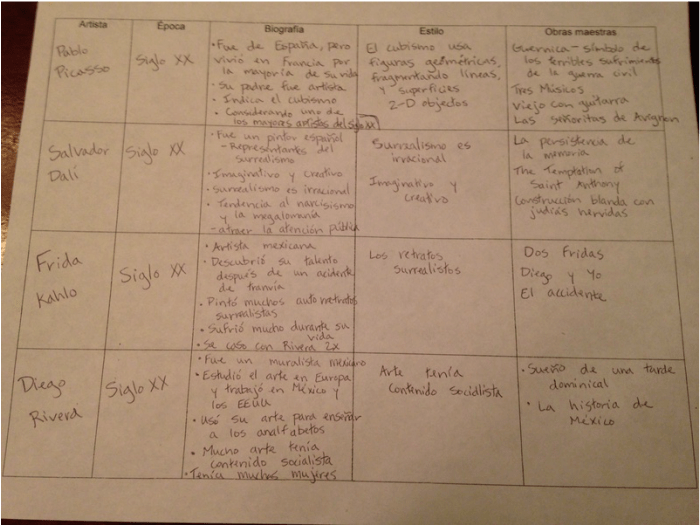 Artista Época Biografía Estilo Obras maestras
Pablo
Picasso
Siglo XX
• Fue de España, pero
vivió en Francia por
la mayoría de su vida
• Su padre fue artista
• Indica el cubismo
• Considerando uno de
los mayores artistas del siglo XX
El cubismo usa
figuras geométricas,
fragmentando líneas,
y superficies
2-D objectos
Guernica - símbolo de
los terribles sufrimientos
de la guerra civil
Tres Músicos
Viejo con guitarra
Las señoritas de Avignon
Salvador
Dalí
Siglo XX
• Fue un pintor español
- Representantes del
surrealismo
• Imaginativo y creativo
• Surrealismo es irracional
• Tendencia al narcisismo
y la megalomanía
- atraer la atención pública
Surrealismo es
irracional
Imaginativo y
creativo
La persistencia de
la memoria
The Temptation of
Saint Anthony
Construcción blanda con
judías hervidas
Frida
Kahlo
Siglo XX
• Artista mexicana
• Descubrió su talento
después de un acidente
de tranvía
• Pintó muchos autorretratos
surrealistas
• Sufrió mucho durante su
vida
• Se caso con Rivera 2x
Los retratos
surrealistos
Dos Fridas
Diego y Yo
El accidente
Diego
Rivera
Siglo XX
• Fue un muralista mexicano
• Estudió el arte en Europa
y trabajó en México y
los EEUU
• Usó su arte para enseñar
a los analfabetos
• Mucho arte tenía
contenido socialista
• Tenía muchos mujeres
Arte tenía
contenido socialista
• Sueño de una tarde
dominical
• La historia de
México